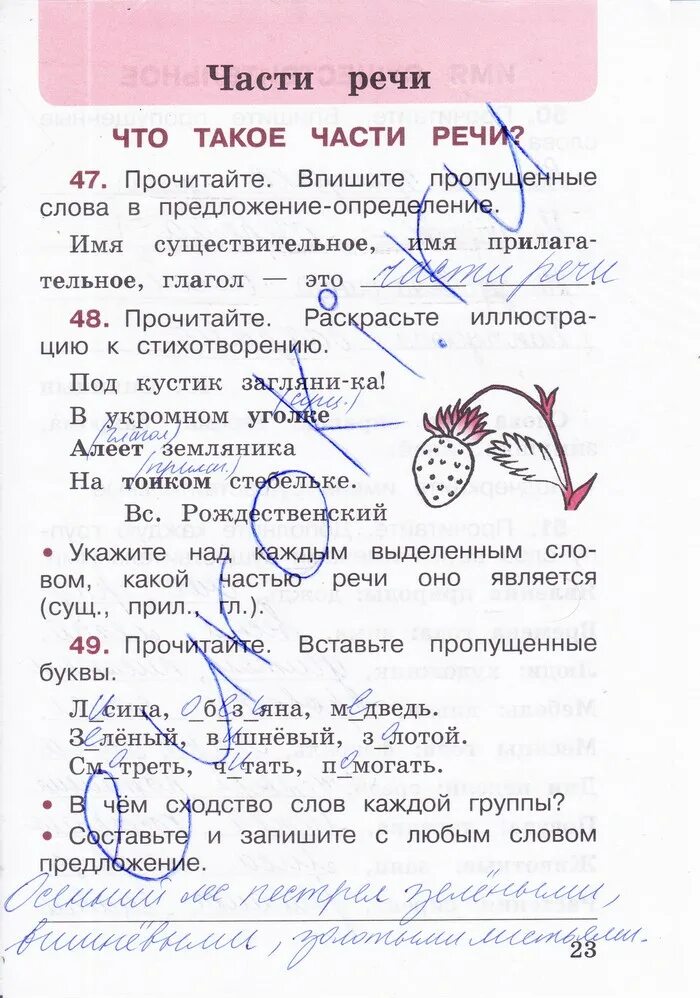 Части речи
ЧТО ТАКОЕ ЧАСТИ РЕЧИ?
47. Прочитайте. Впишите пропущенные
слова в предложение-определение.
Имя существительное, имя прилага-
тельное, глагол — это части речи.
48. Прочитайте. Раскрасьте иллюстра-
цию к стихотворению.
Под кустик загляни-ка!
(сущ.)
В укромном уголке
(глагол)
Алеет земляника
(прилаг.)
На тонком стебельке.
Вс. Рождественский
• Укажите над каждым выделенным сло-
вом, какой частью речи оно является
(сущ., прил., гл.).
49. Прочитайте. Вставьте пропущенные
буквы.
Лисица, обезьяна, медведь.
Зелёный, вишнёвый, золотой.
Смотреть, читать, помогать.
• В чём сходство слов каждой группы?
• Составьте и запишите с любым словом
предложение.
Осенний лес пестрел зелёными,
вишнёвыми, золотыми листьями.
23